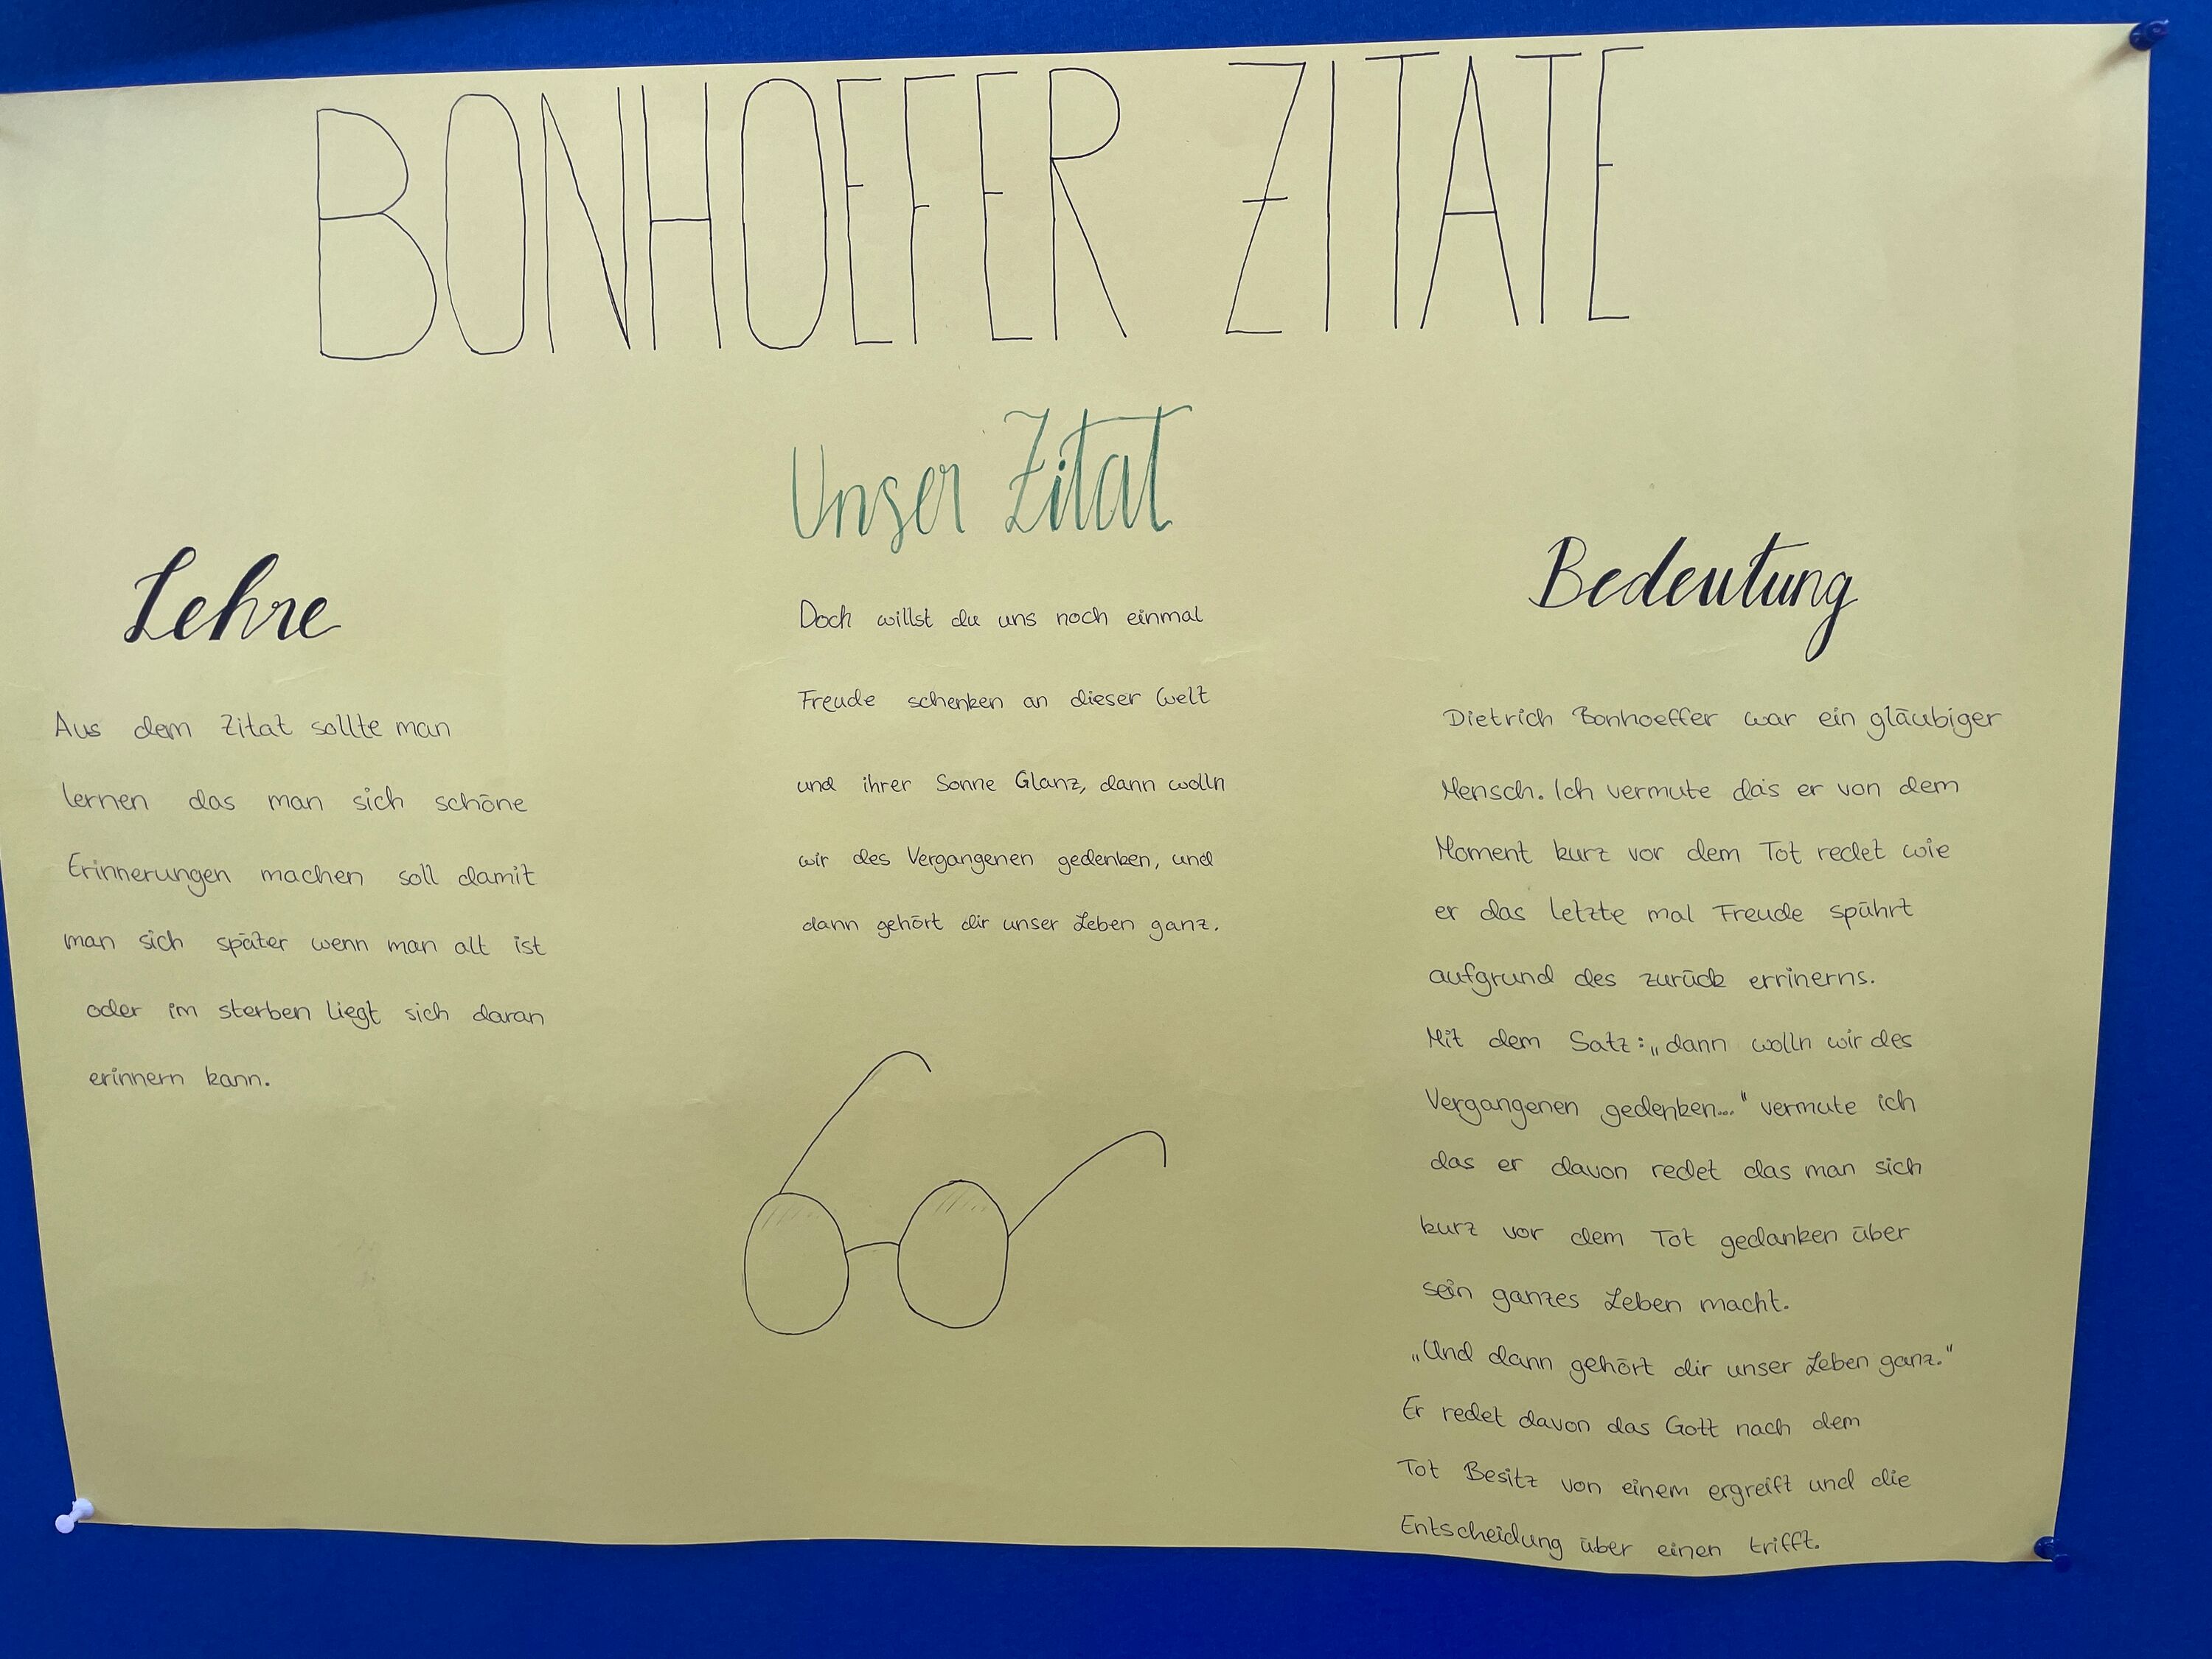 BONHOEFER ZITATE
Unser Zitat
Lehre
Aus dem Zitat sollte man
lernen das man sich schöne
Erinnerungen machen soll damit
man sich später wenn man alt ist
oder im sterben liegt sich daran
erinnern kann.
Doch willst du uns noch einmal
Freude schenken an dieser Welt
und ihrer Sonne Glanz, dann wolln
wir des Vergangenen gedenken, und
dann gehört dir unser Leben ganz.
Bedeutung
Dietrich Bonhoeffer war ein gläubiger
Mensch. Ich vermute das er von dem
Moment kurz vor dem Tot redet wie
er das letzte mal Freude spührt
aufgrund des zurück errinerns.
Mit dem Satz: „dann wolln wir des
Vergangenen gedenken..." vermute ich
das er davon redet das man sich
kurz vor dem Tot gedanken über
sein ganzes Leben macht.
„Und dann gehört dir unser Leben ganz."
Er redet davon das Gott nach dem
Tot Besitz von einem ergreift und die
Entscheidung über einen trifft.